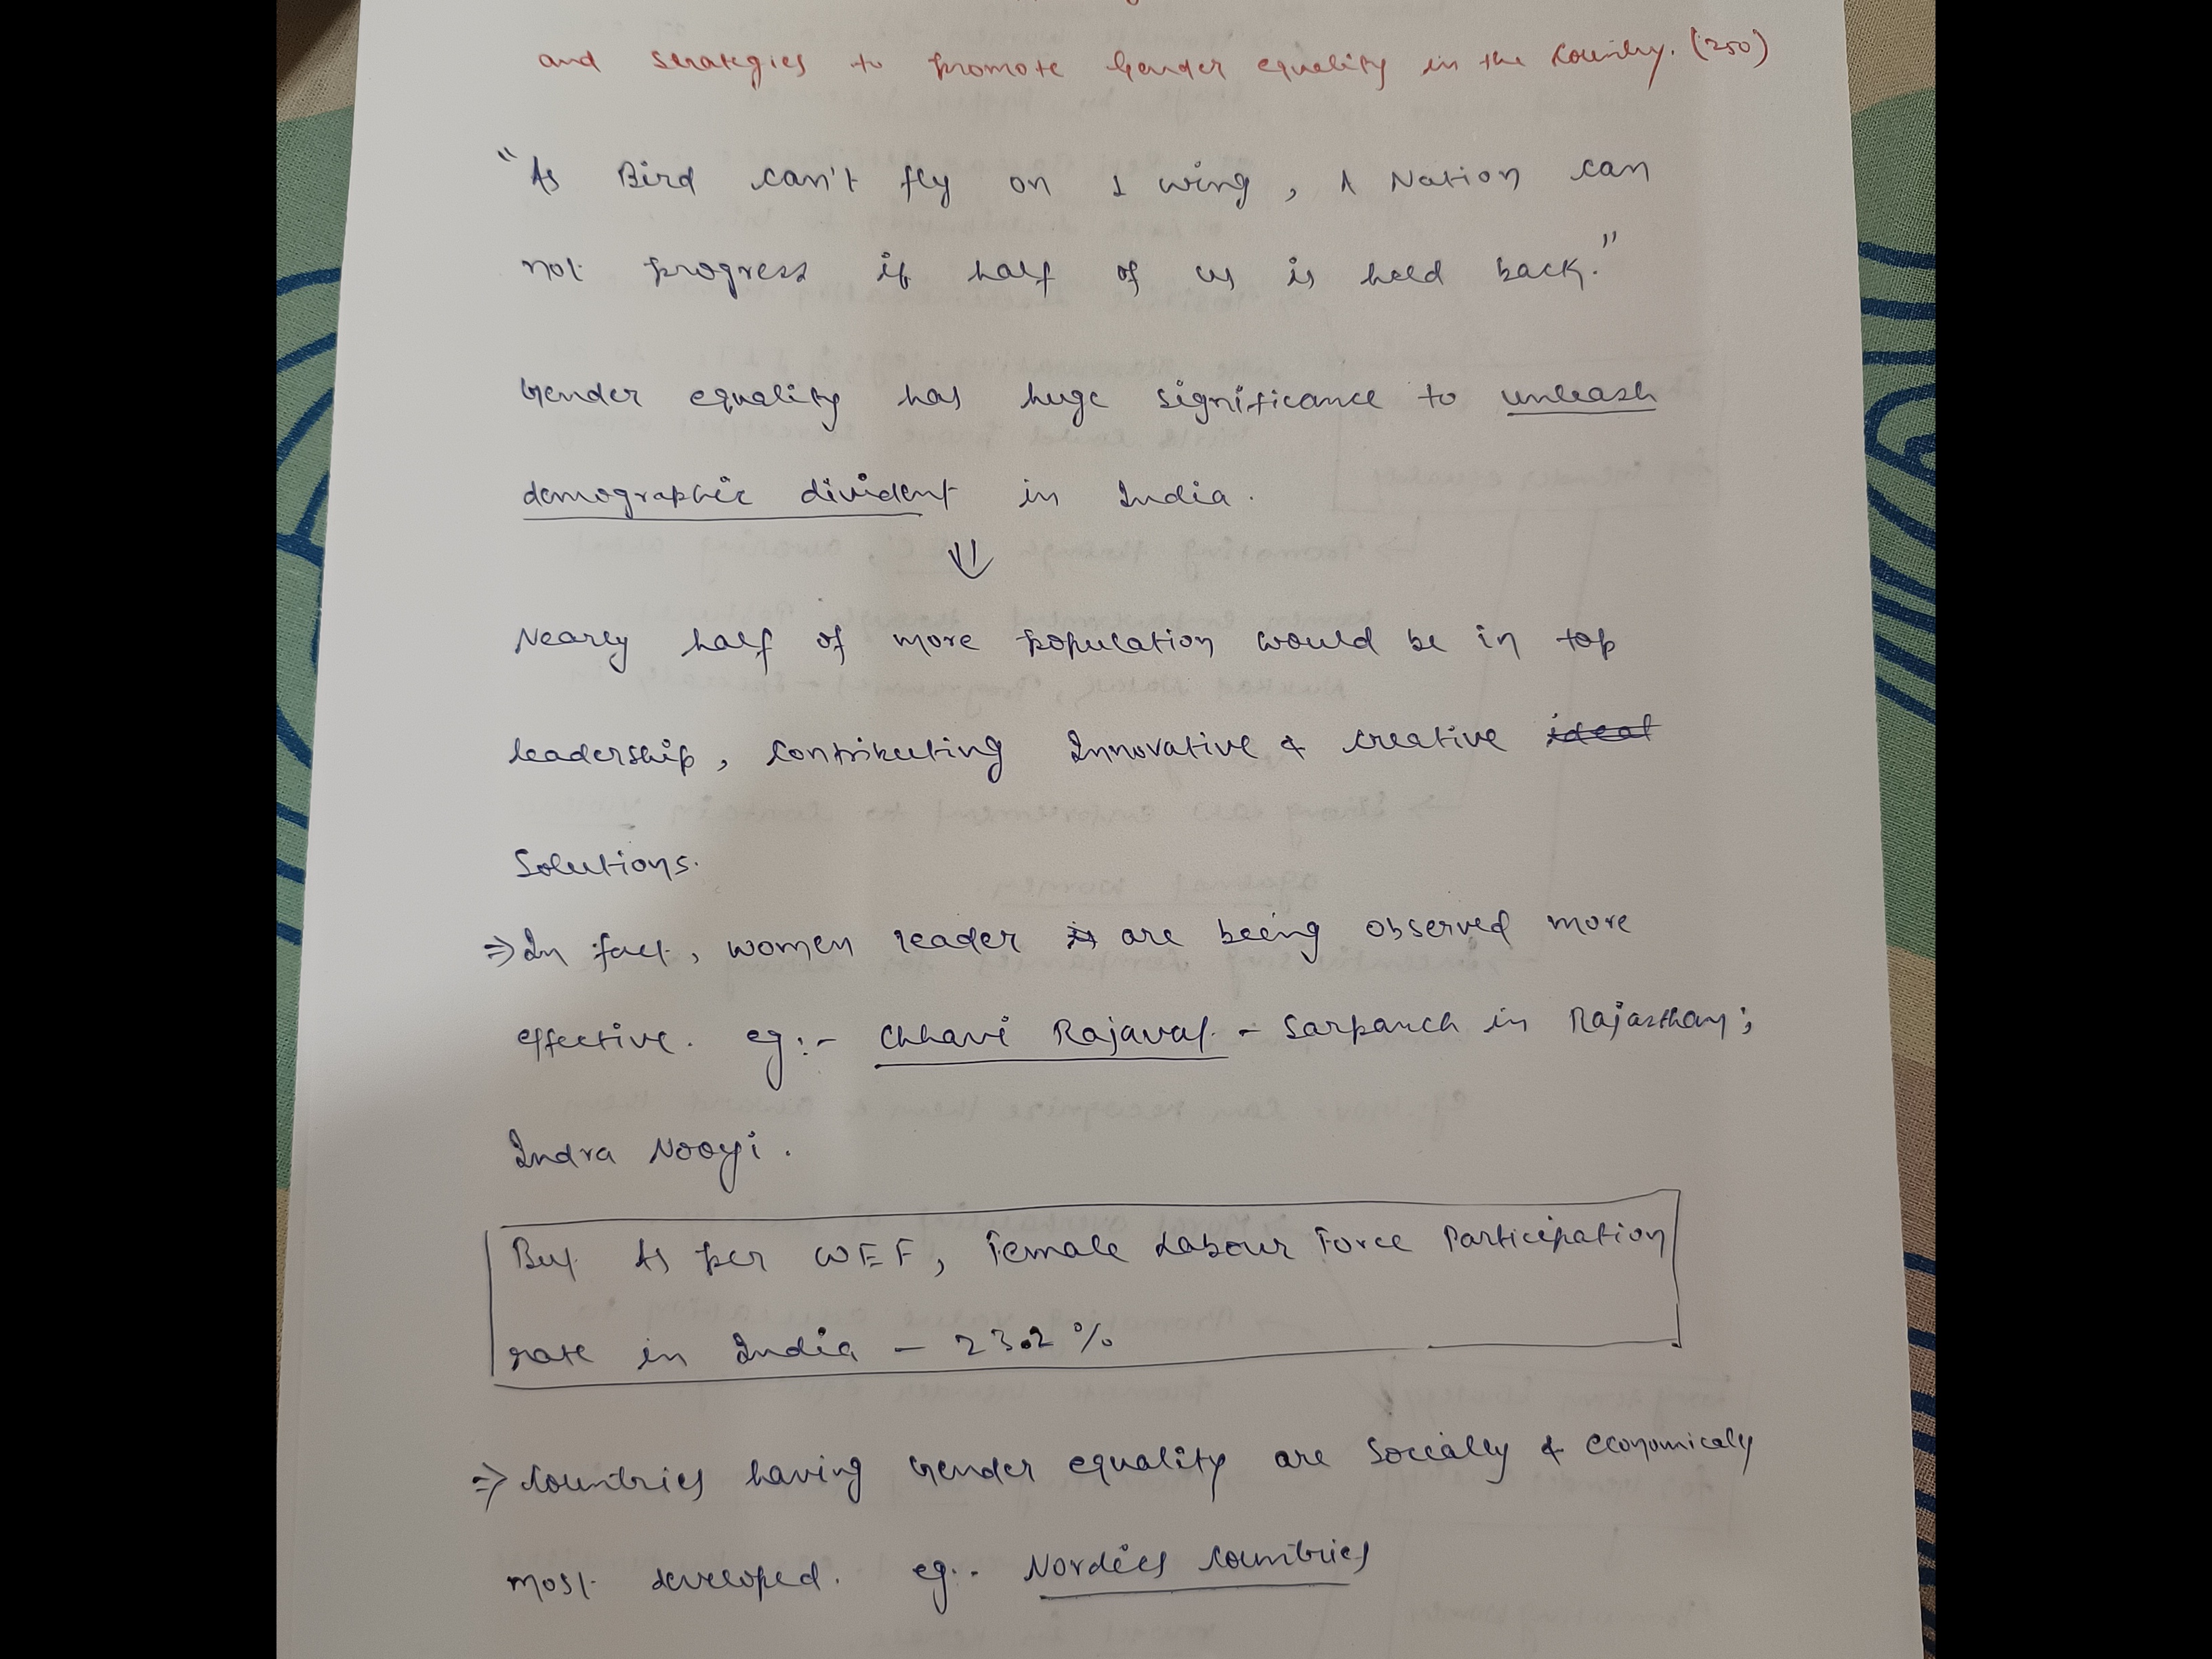 and strategies to promote Gender equality in the Country. (250)
"As Bird can't fly on 1 wing, A Nation can
not progress if half of us is held back."
Gender equality has huge significance to unleash
demographic divident in India.
Nearly half of more population would be in top
leadership, contributing Innovative & creative ideal
Solutions.
⇒ In fact, women leader is are being observed more
effective. eg:- Chhavi Rajavat - Sarpanch in Rajasthan;
Indra Nooyi.
But As per WEF, Female Labour Force Participation
rate in India - 23.2%
⇒ Countries having Gender equality are Socially & economicaly
most developed. eg:- Nordics Countries